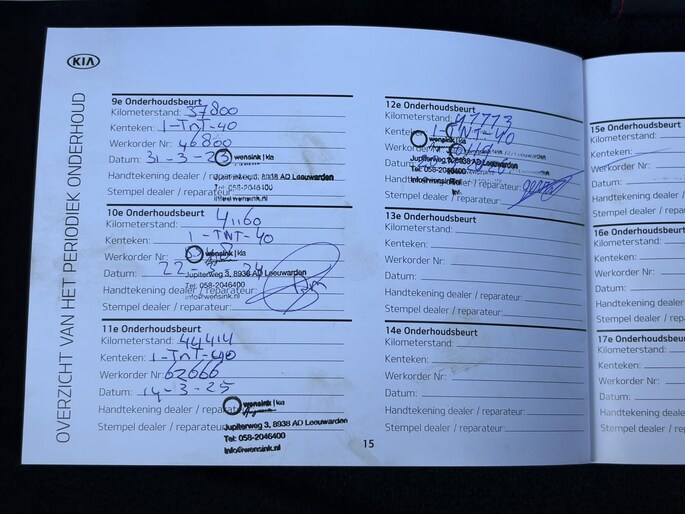 KIA
OVERZICHT VAN HET PERIODIEK ONDERHOUD
9e Onderhoudsbeurt
Kilometerstand: 37800
Kenteken: 1-TnT-40
Werkorder Nr: 46800
Datum: 31-3-23
wensink | kia
Handtekening dealer / reparateur:
Jupiterweg 3, 8938 AD Leeuwarden
Tel: 058-2046400
Stempel dealer / reparateur:
info@wensink.nl
10e Onderhoudsbeurt
Kilometerstand: 41160
Kenteken: 1-TNT-40
Werkorder Nr:
wensink | kia
Datum: 22- 24
Jupiterweg 3, 8938 AD Leeuwarden
Tel: 058-2046400
Handtekening dealer / reparateur:
info@wensink.nl
Stempel dealer / reparateur:
11e Onderhoudsbeurt
Kilometerstand: 44414
Kenteken: 1-TnT-40
Werkorder Nr: 62666
Datum: 14-3-25
wensink | kia
Handtekening dealer / reparateur:
Stempel dealer / reparateur:
Jupiterweg 3, 8938 AD Leeuwarden
Tel: 058-2046400
info@wensink.nl
12e Onderhoudsbeurt
Kilometerstand: 47773
Kenteken: 1-TNT-40
wensink | kia
Werkorder Nr:
Datum:
Jupiterweg 3, 8938 AD Leeuwarden
Tel: 058-2046400
Handtekening dealer / reparateur:
info@wensink.nl
Stempel dealer / reparateur:
13e Onderhoudsbeurt
Kilometerstand:
Kenteken:
Werkorder Nr:
Datum:
Handtekening dealer / reparateur:
Stempel dealer / reparateur:
14e Onderhoudsbeurt
Kilometerstand:
Kenteken:
Werkorder Nr:
Datum:
Handtekening dealer / reparateur:
Stempel dealer / reparateur:
15
15e Onderhoudsbeurt
Kilometerstand:
Kenteken:
Werkorder Nr:
Datum:
Handtekening dealer
Stempel dealer / rep
16e Onderhoudsbeur
Kilometerstand:
Kenteken:
Werkorder Nr:
Datum:
Handtekening deale
Stempel dealer / rep
17e Onderhoudsbe
Kilometerstand:
Kenteken:
Werkorder Nr:
Datum:
Handtekening dea
Stempel dealer / r